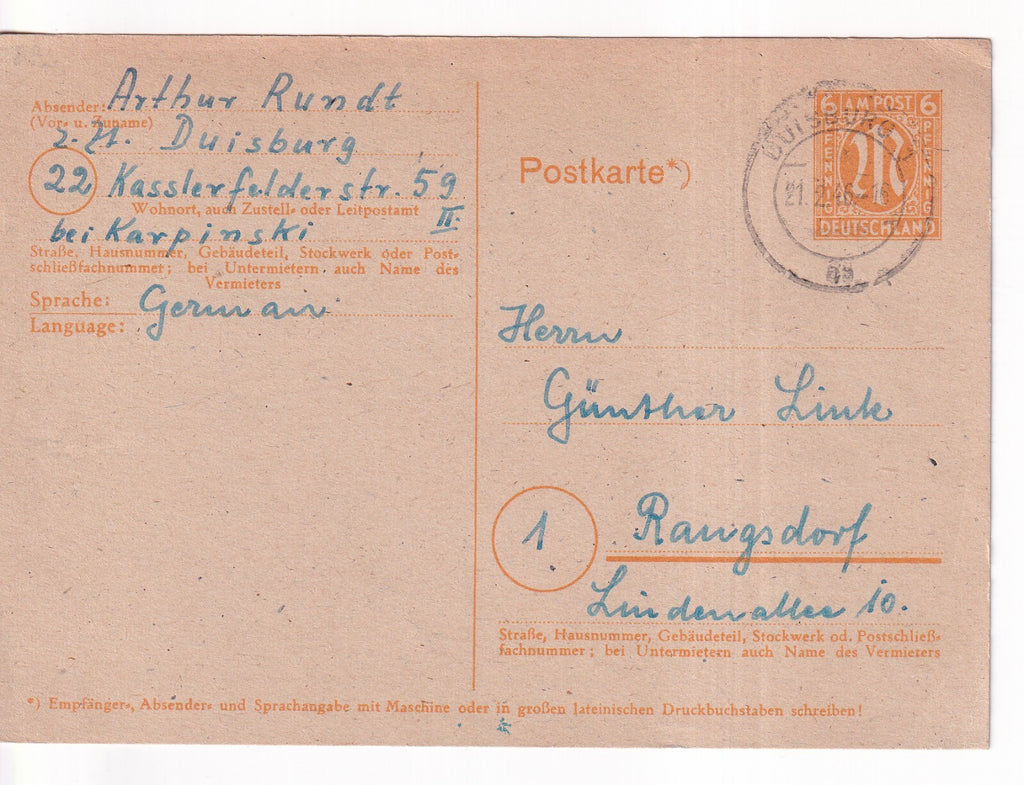 Absender: Arthur Rundt
(Vor- u. Zuname)
z. Zt. Duisburg
22 Kasslerfelderstr. 59
Wohnort, auch Zustell- oder Leitpostamt
II.
bei Karpinski
Straße, Hausnummer, Gebäudeteil, Stockwerk oder Post-
schließfachnummer; bei Untermietern auch Name des
Vermieters
Sprache: German
Language:
Postkarte*)
6 AM POST 6
PFENNIG PFENNIG
DEUTSCHLAND
DUISBURG 1
21.2.46
Herrn
Günther Link
1 Rangsdorf
Lindenallee 10.
Straße, Hausnummer, Gebäudeteil, Stockwerk od. Postschließ-
fachnummer; bei Untermietern auch Name des Vermieters
*) Empfänger-, Absender- und Sprachangabe mit Maschine oder in großen lateinischen Druckbuchstaben schreiben!